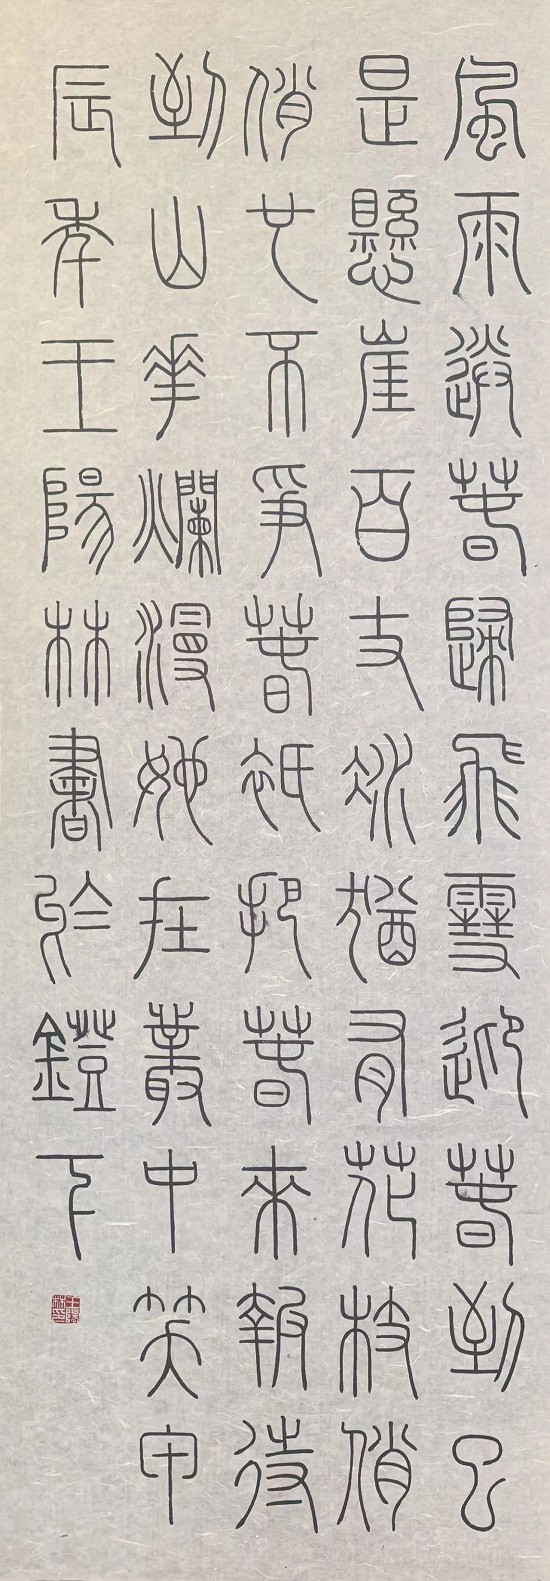 風雨送春歸飛雪迎春到已
是懸崖百丈冰猶有花枝俏
俏也不爭春祇把春來報待
到山花爛漫她在叢中笑甲
辰年王陽林書於鐙下
王陽林印